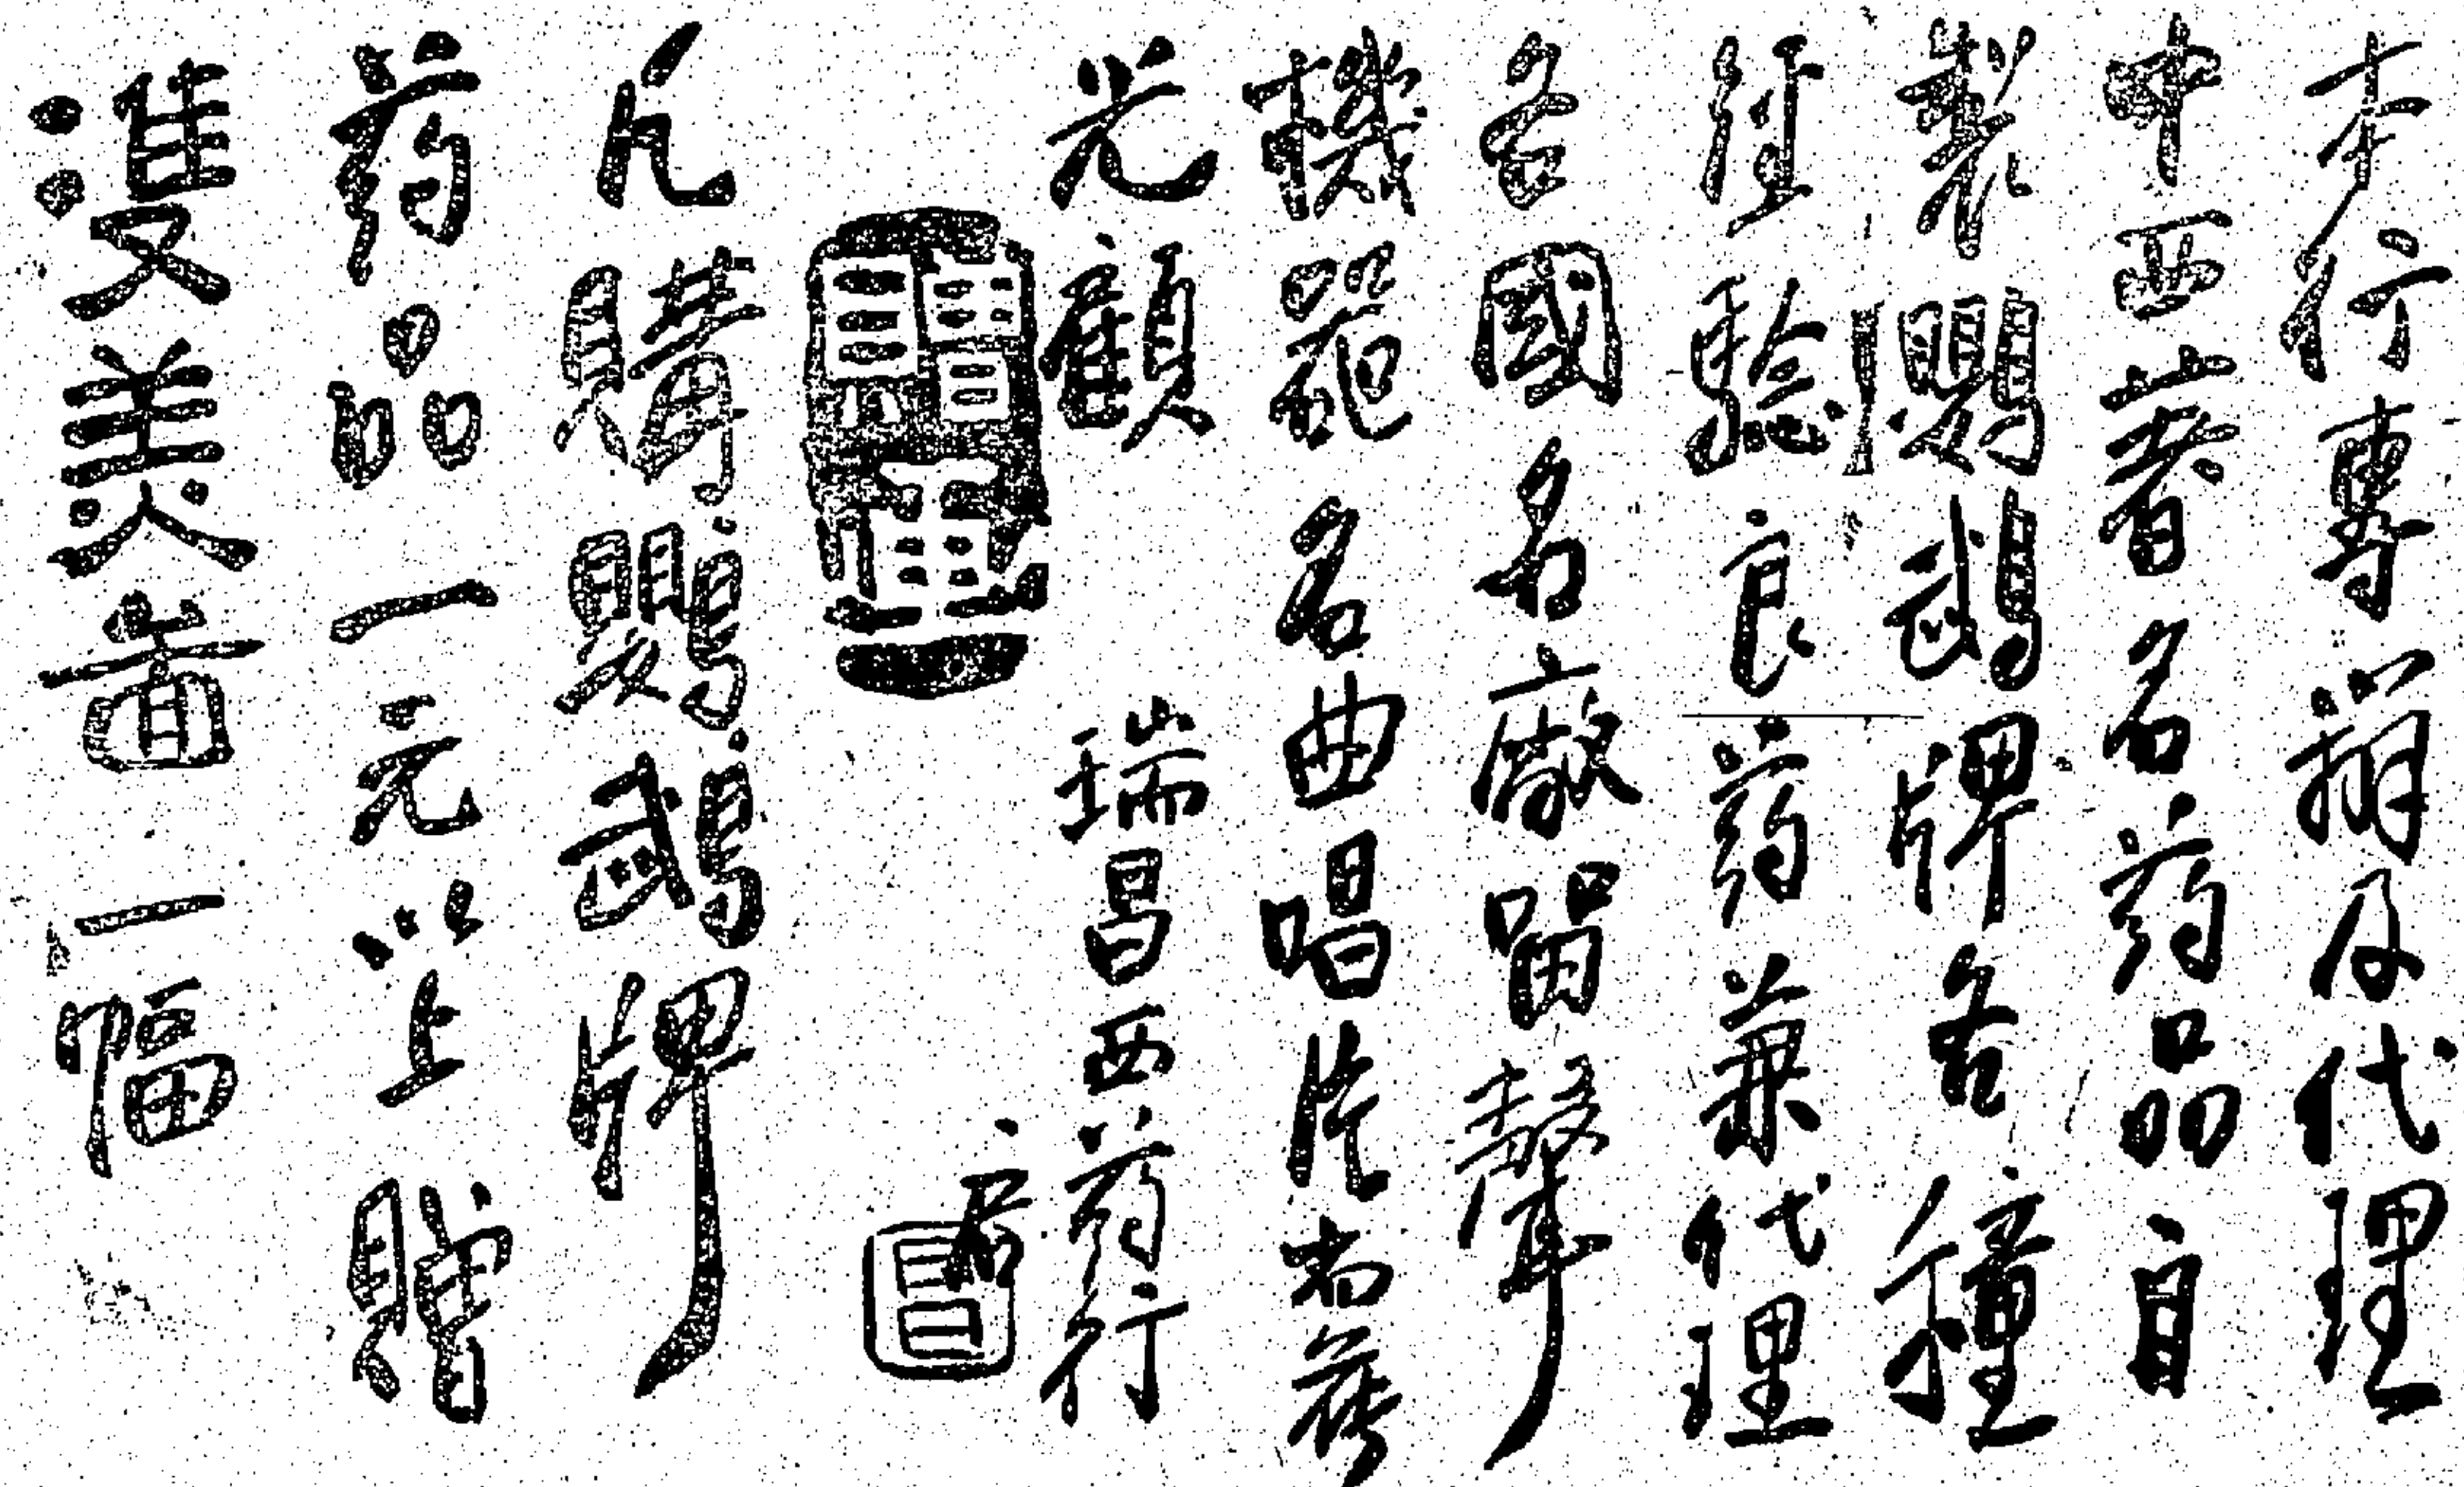 本行專辦及代理
中西著名药品自
製鸚鵡牌各種
經驗良药兼代理
各國名廠留聲
機器名曲唱片尚蒙
光顧 瑞昌西药行
凡購鸚鵡牌
药品一元以上贈
雙美一幅